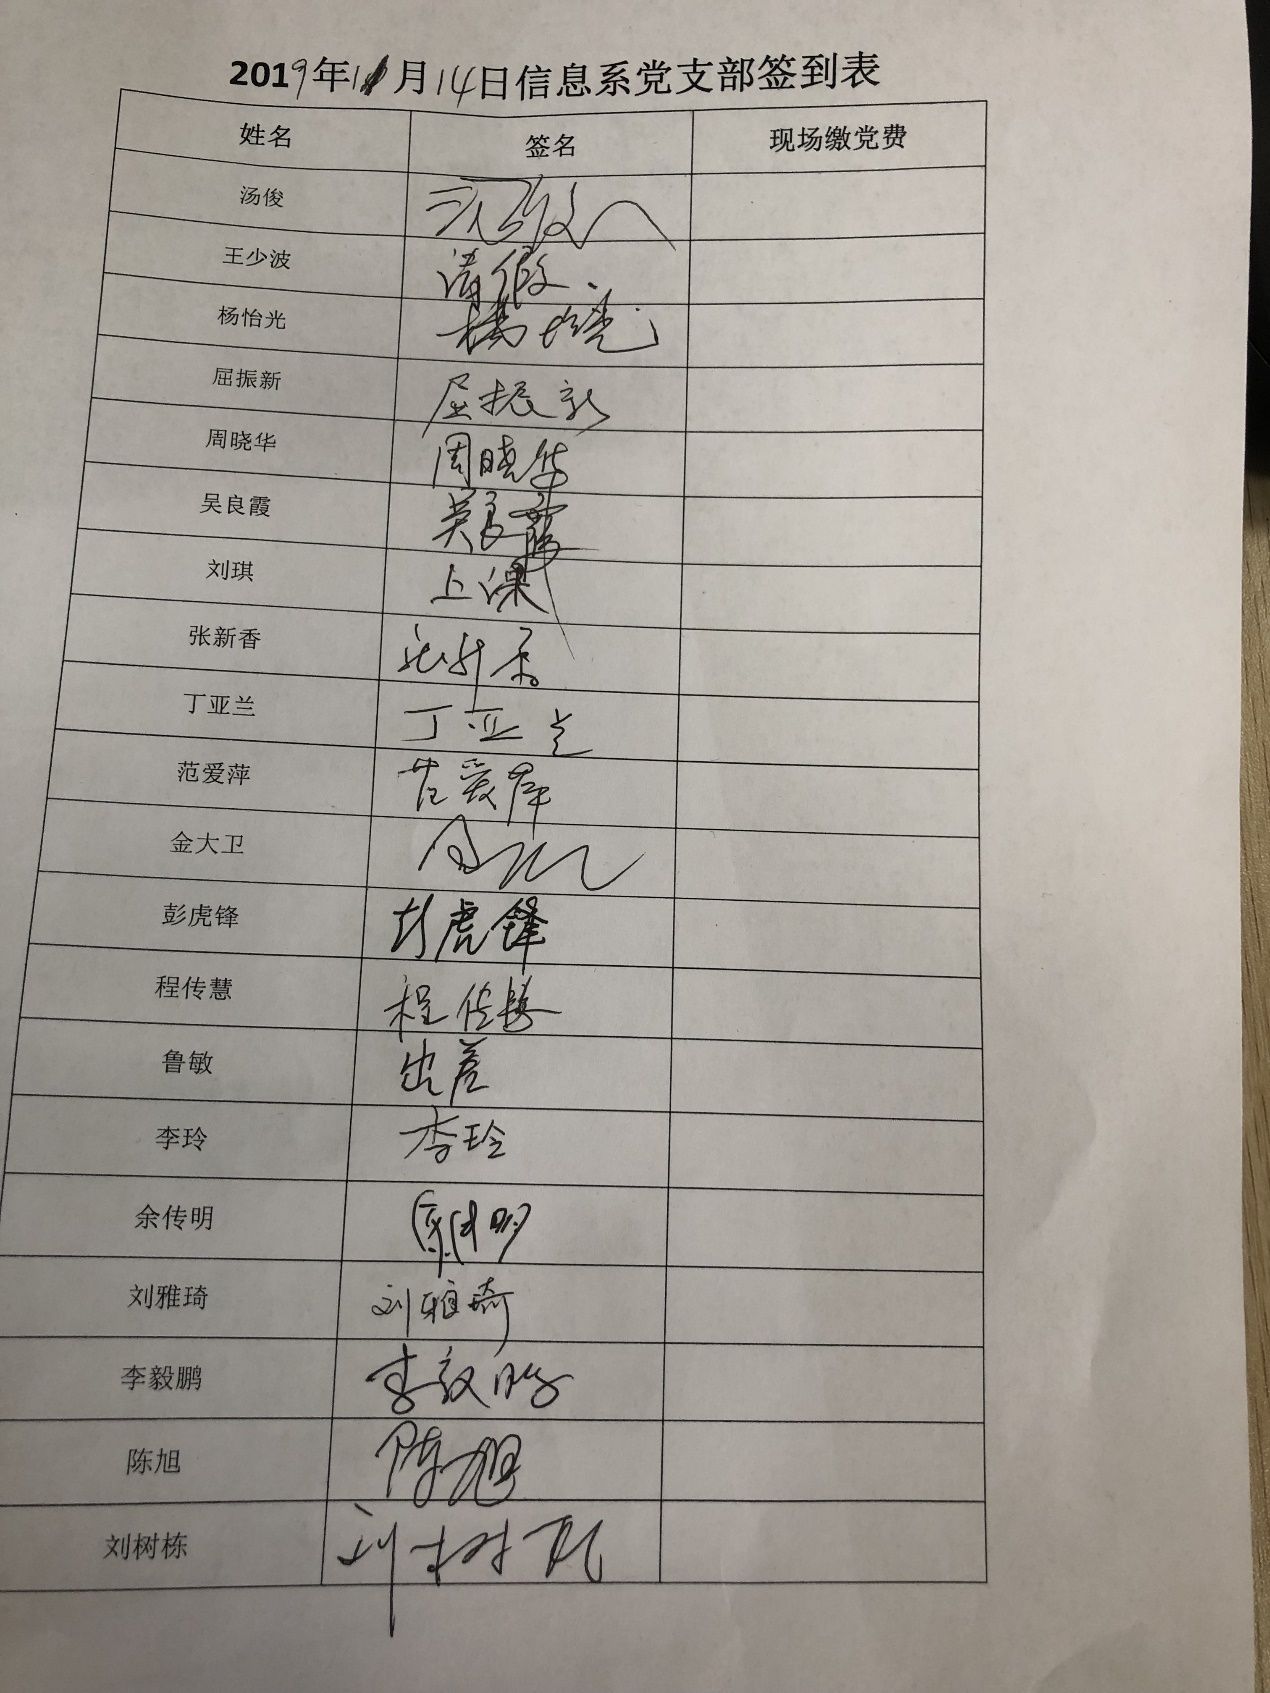 2019年11月14日信息系党支部签到表
姓名 签名 现场缴党费
汤俊 汤俊
王少波 请假
杨怡光 杨怡光
屈振新 屈振新
周晓华 周晓华
吴良霞 吴良霞
刘琪 上课
张新香 张新香
丁亚兰 丁亚兰
范爱萍 范爱萍
金大卫
彭虎锋 彭虎锋
程传慧 程传慧
鲁敏 出差
李玲 李玲
余传明 余传明
刘雅琦 刘雅琦
李毅鹏 李毅鹏
陈旭 陈旭
刘树栋 刘树栋